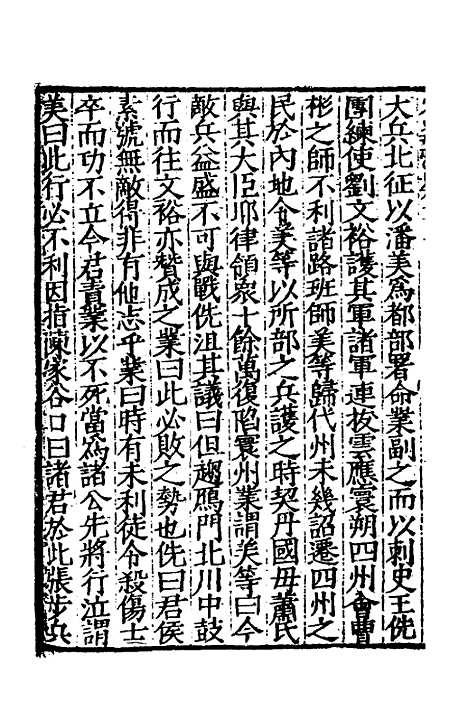 大兵北征以潘美爲都部署命業副之而以刺史王侁
團練使劉文裕護其軍諸軍連拔雲應寰朔四州會曹
彬之師不利諸路班師美等歸代州未幾詔遷四州之
民於內地令美等以所部之兵護之時契丹國毋蕭氏
與其大臣耶律領衆十餘萬復陷寰州業謂美等曰今
敵兵益盛不可與戰侁沮其議曰但趨鴈門北川中鼓
行而往文裕亦贊成之業曰此必敗之勢也侁曰君侯
素號無敵得非有他志乎業曰時有未利徒令殺傷士
卒而功不立今君責業以不死當爲諸公先將行泣謂
美曰此行必不利因指陳家谷口曰諸君於此張步兵